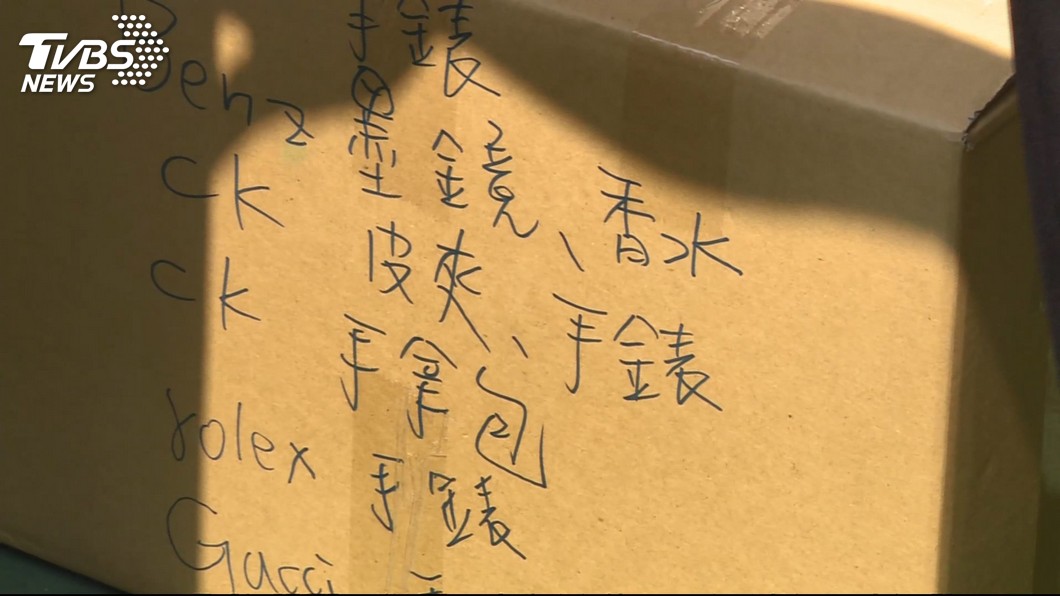 TVBS
NEWS
手錶
Benz 墨鏡、香水
CK 皮夾、手錶
CK 手拿包
rolex 手錶
Gucci